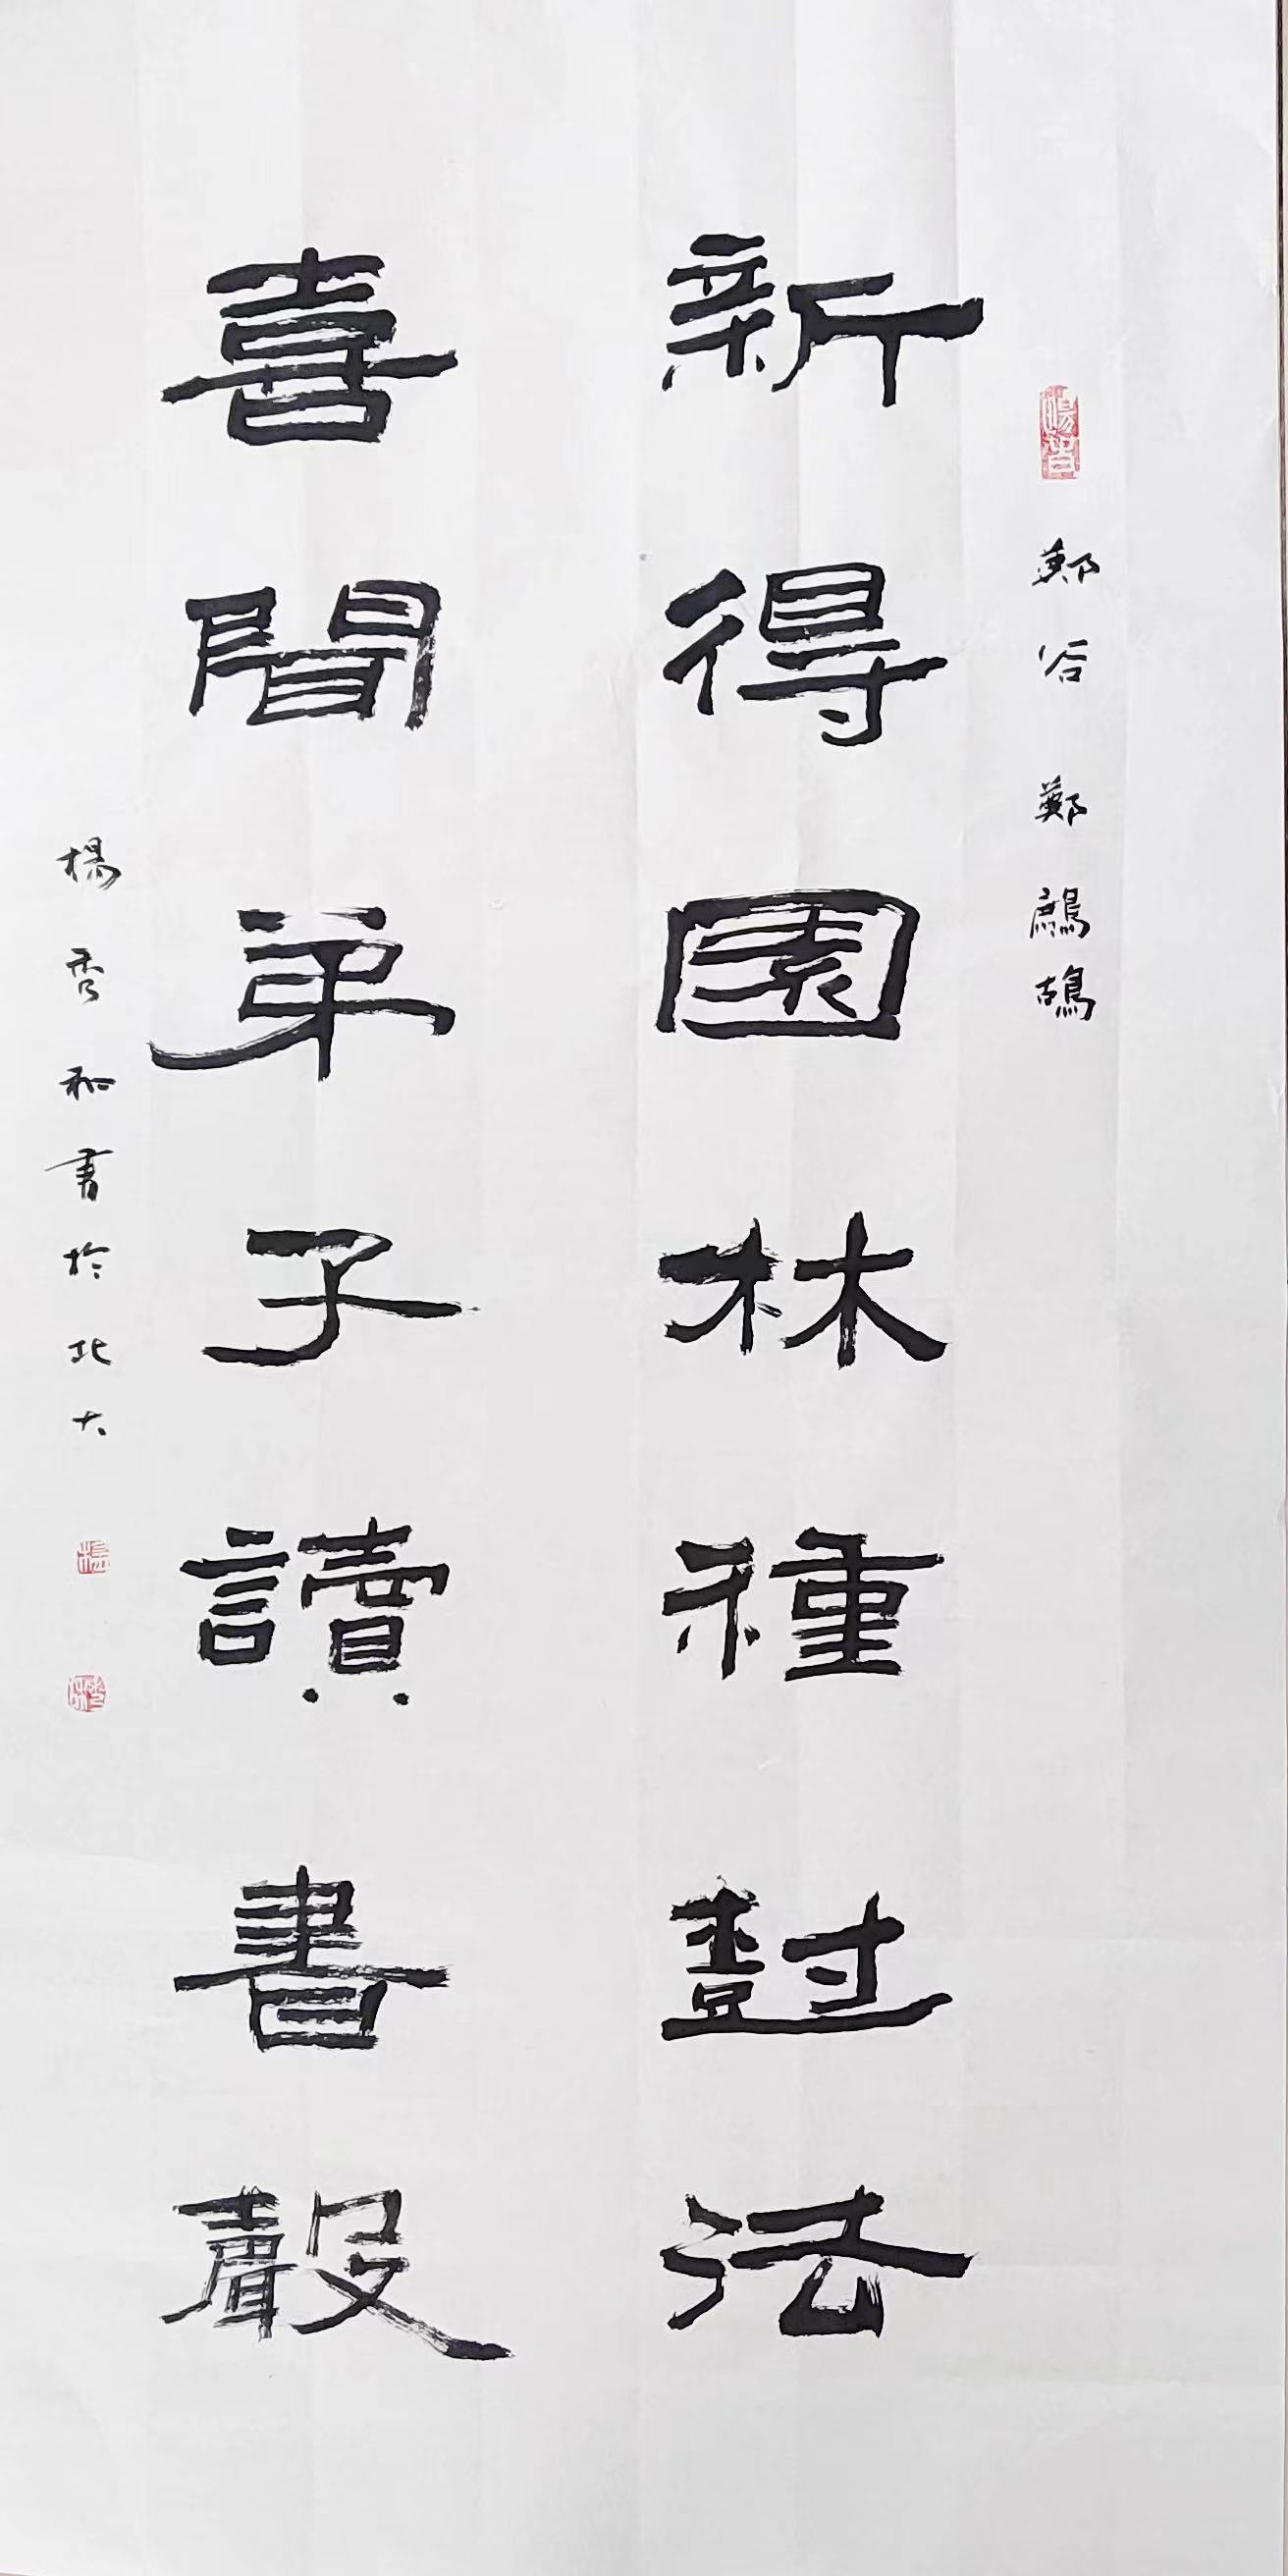 鄭谷鄭鷓鴣
新得園林種尌法
喜聞弟子讀書聲
楊秀和書於北大